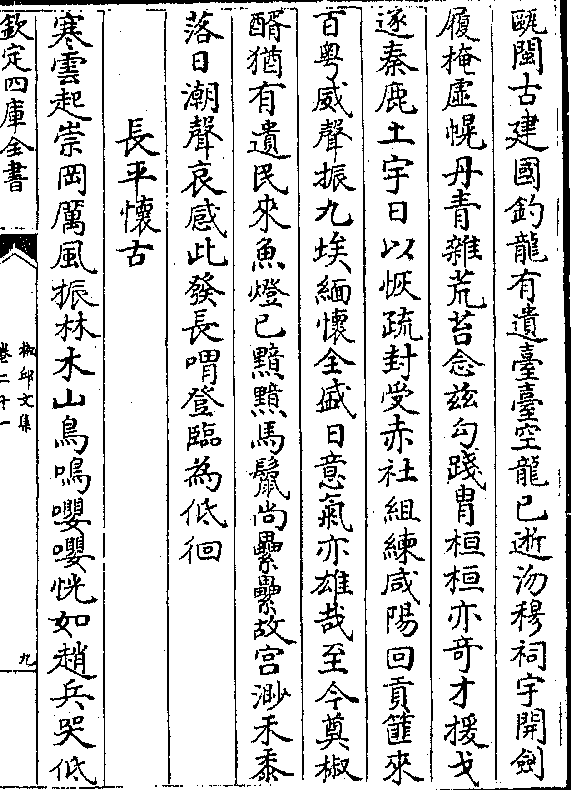 甌閩古建國釣龍有遺臺臺空龍已逝沕穆祠宇開劍
履掩虛幌丹青雜荒苔念兹勾踐胄桓桓亦奇才援戈
逐秦鹿土宇日以恢疏封受赤社組練咸陽回貢篚來
百粤威聲振九埃緬懷全盛日意氣亦雄哉至今奠椒
醑猶有遺民來魚燈已黯黯馬鬛尚纍纍故宫渺禾黍
落日潮聲哀感此發長喟登臨為低徊
長平懷古
寒雲起崇岡厲風振林木山鳥鳴嚶嚶恍如趙兵哭低
欽定四庫全書
椒邱文集
卷二十一
九